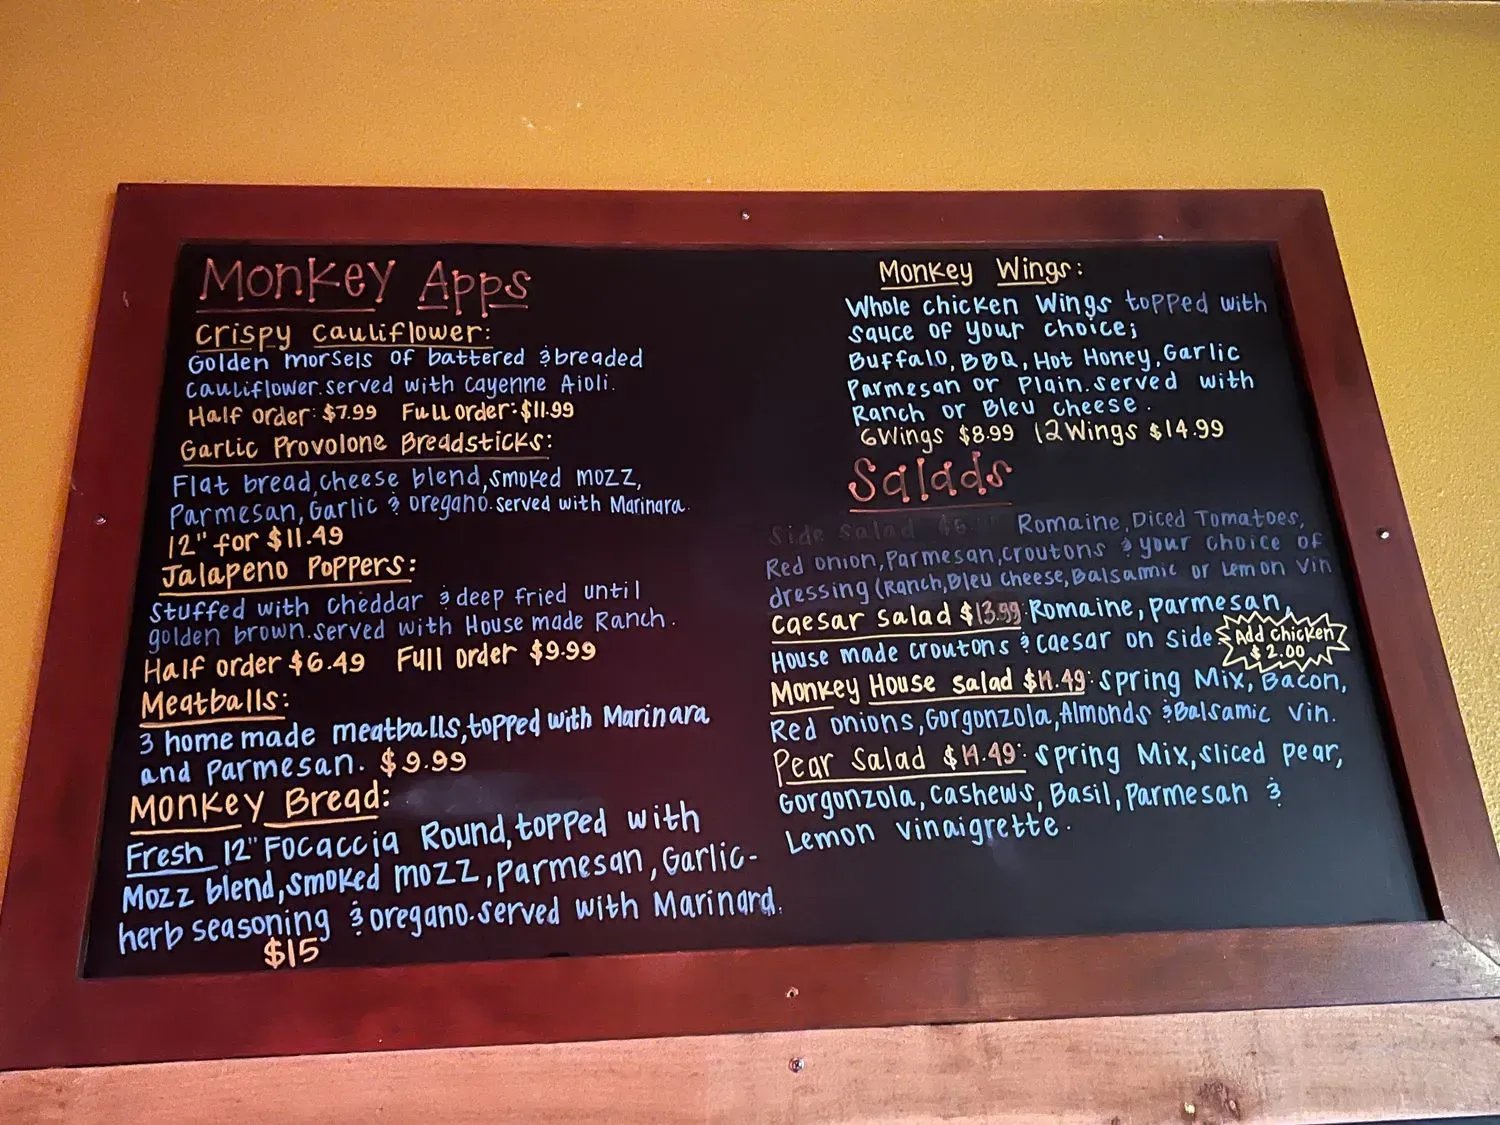 Monkey Apps
Crispy Cauliflower:
Golden morsels of battered & breaded
cauliflower. served with cayenne Aioli.
Half order: $7.99 Full order: $11.99
Garlic Provolone Breadsticks:
Flat bread, cheese blend, smoked mozz,
Parmesan, Garlic & oregano. served with Marinara.
12" for $11.49
Jalapeno Poppers:
Stuffed with cheddar & deep fried until
golden brown. served with House made Ranch.
Half order $6.49 Full order $9.99
Meatballs:
3 home made meatballs, topped with Marinara
and Parmesan. $9.99
Monkey Bread:
Fresh 12" Focaccia Round, topped with
Mozz blend, smoked mozz, parmesan, Garlic-
herb seasoning & oregano. served with Marinara.
$15
Monkey Wings:
Whole chicken Wings topped with
sauce of your choice;
Buffalo, BBQ, Hot Honey, Garlic
Parmesan or Plain. served with
Ranch or Bleu cheese.
6 Wings $8.99 12 Wings $14.99
Salads
Side Salad Romaine, Diced Tomatoes,
Red onion, Parmesan, croutons & your choice of
dressing (Ranch, Bleu cheese, Balsamic or Lemon Vin
Caesar Salad $13.99: Romaine, parmesan,
House made croutons & caesar on side
Add chicken
$2.00
Monkey House Salad : spring Mix, Bacon,
Red onions, Gorgonzola, Almonds & Balsamic Vin.
Pear Salad : spring Mix, sliced pear,
Gorgonzola, cashews, Basil, Parmesan &
Lemon vinaigrette.